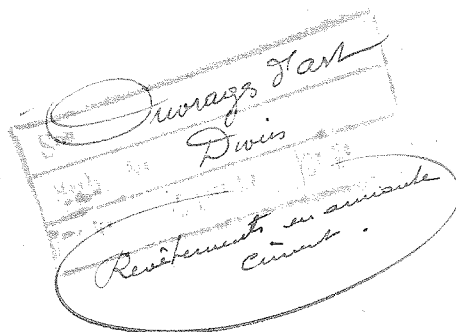 Ouvrages d'art
Divers
Revêtements en amiante
ciment.